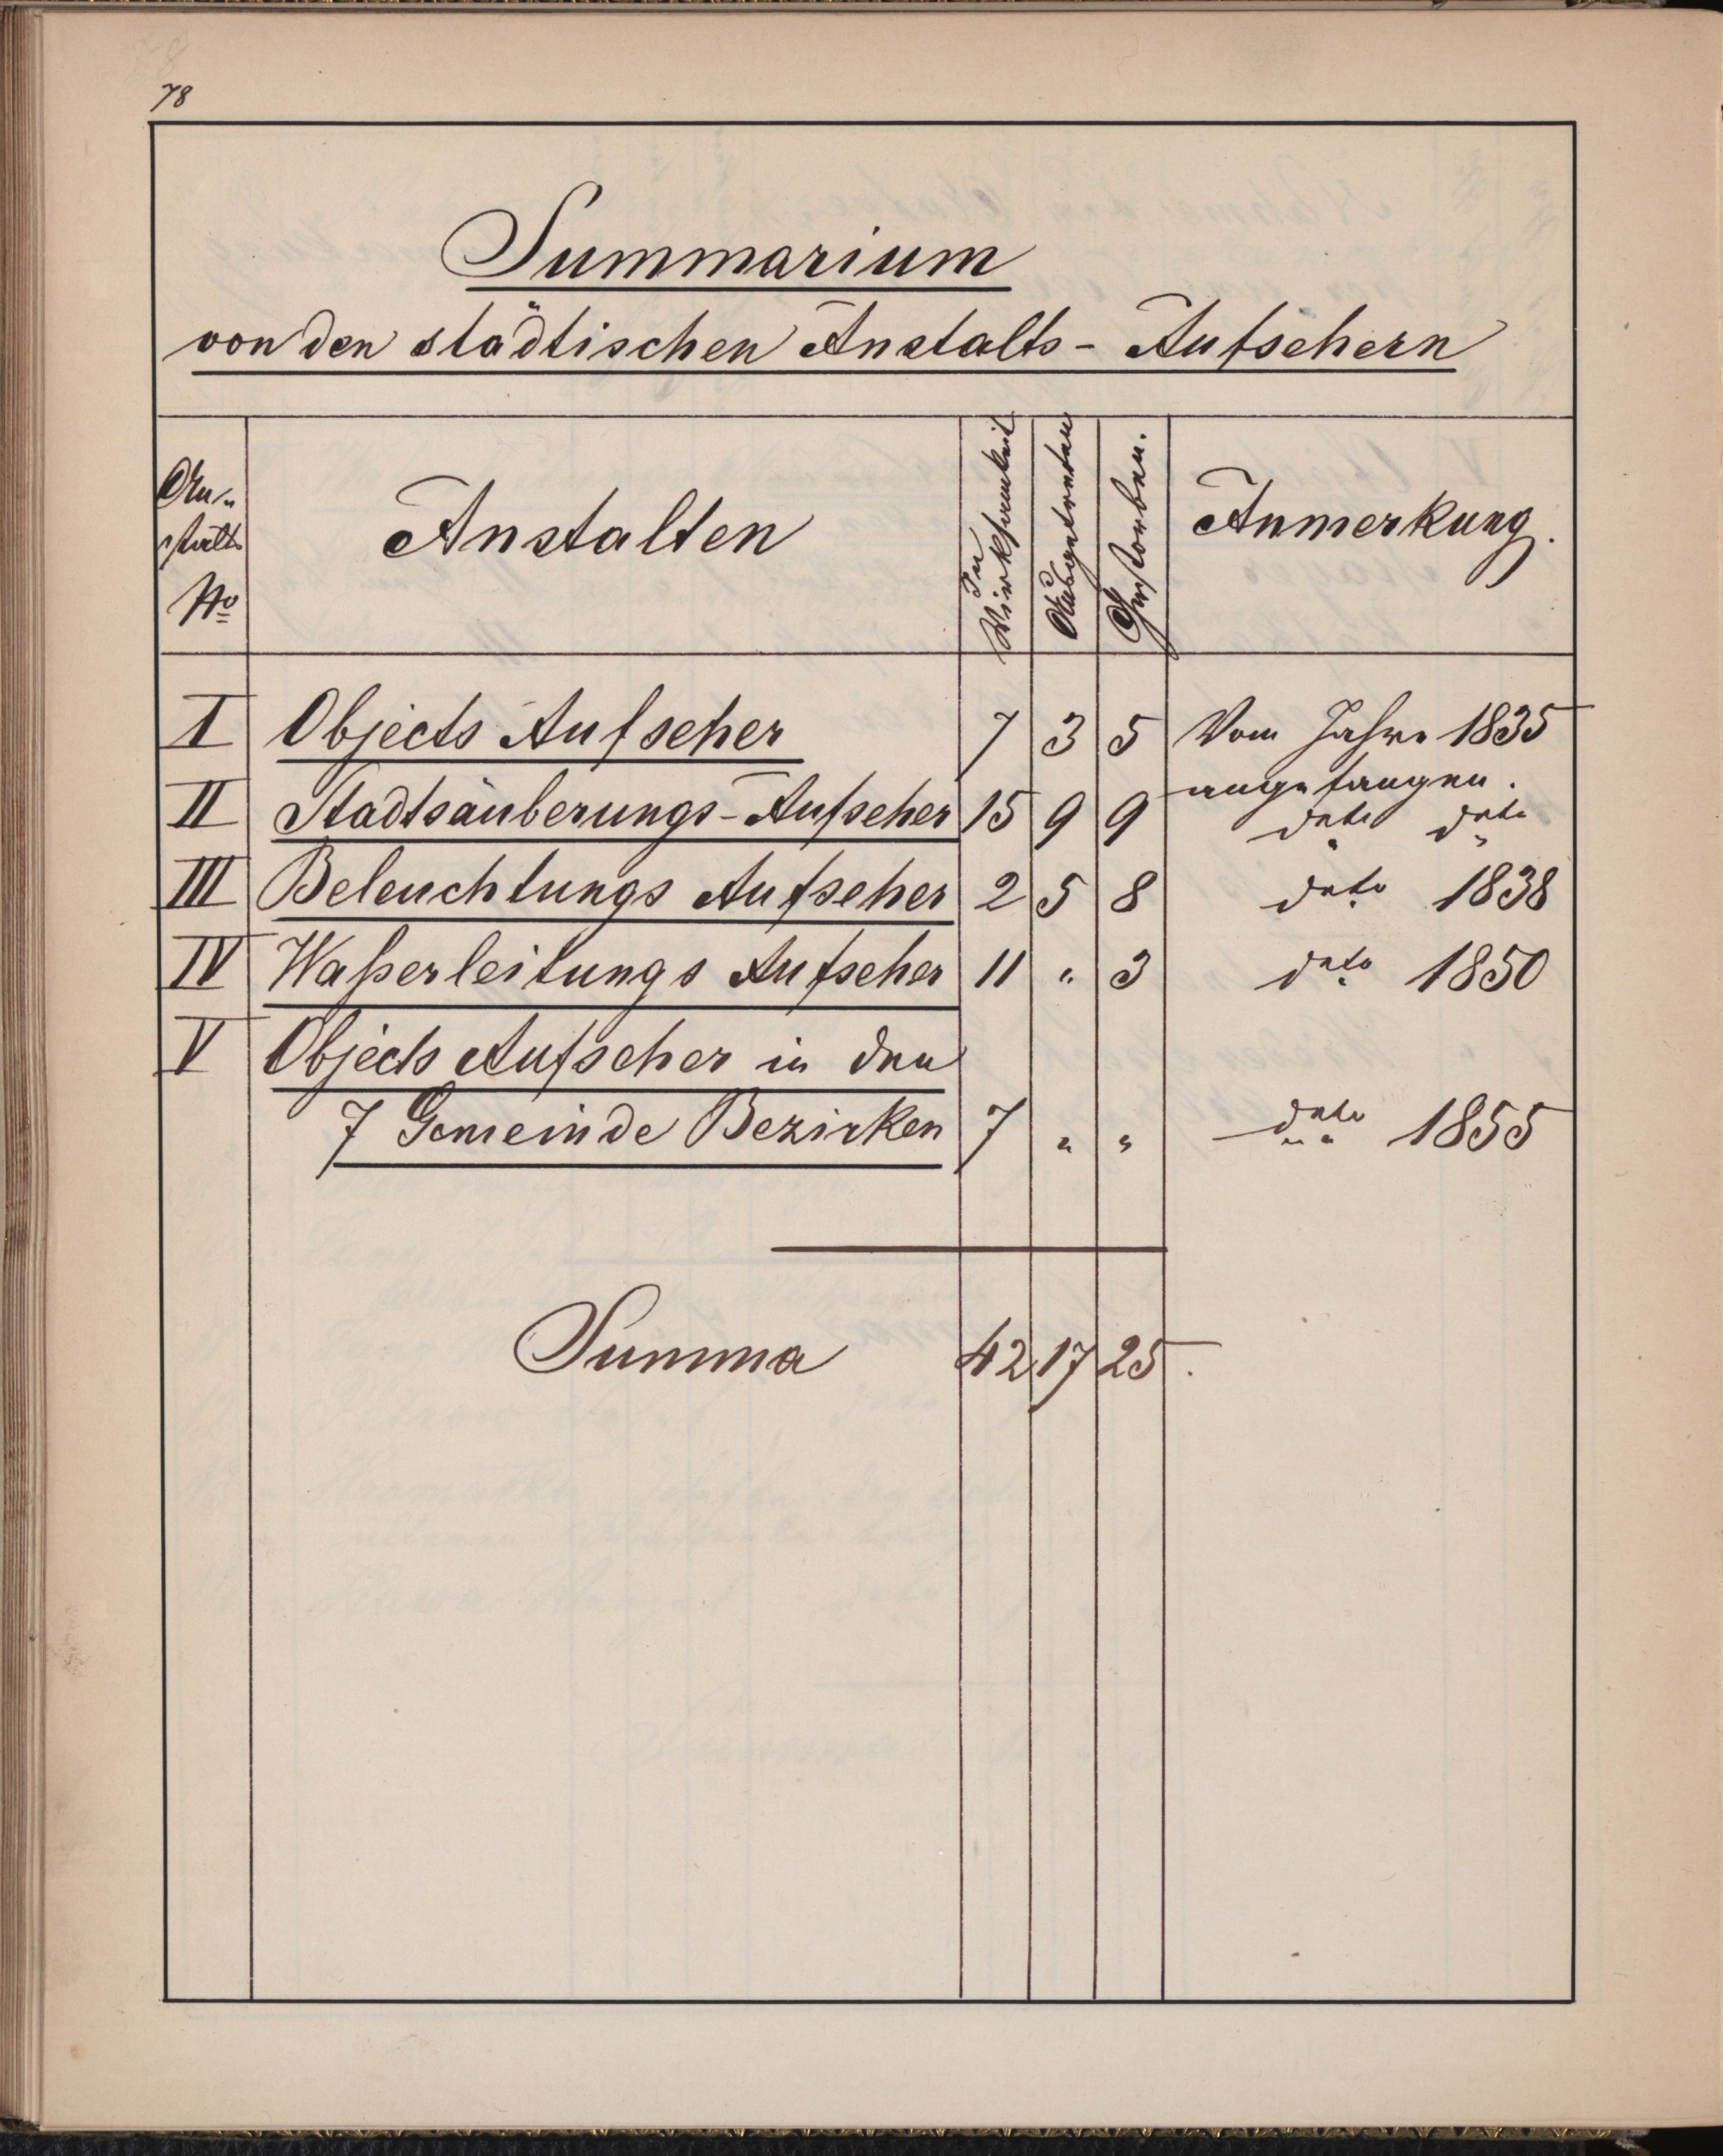 78
Summarium
von den städtischen Anstalts-Aufsehern
An-
stalts
No
Anstalten
In
Wirksamkeit
Abgetreten
Gestorben.
Anmerkung.
I Objects Aufseher 7 3 5 Vom Jahre 1835
angefangen.
II Stadtsäuberungs-Aufseher 15 9 9 dato dato
III Beleuchtungs Aufseher 2 5 8 dato 1838
IV Waßerleitungs Aufseher 11 " 3 dato 1850
V Objects Aufseher in den
7 Gemeinde Bezirken 7 " " dato 1855
Summa 42 17 25.